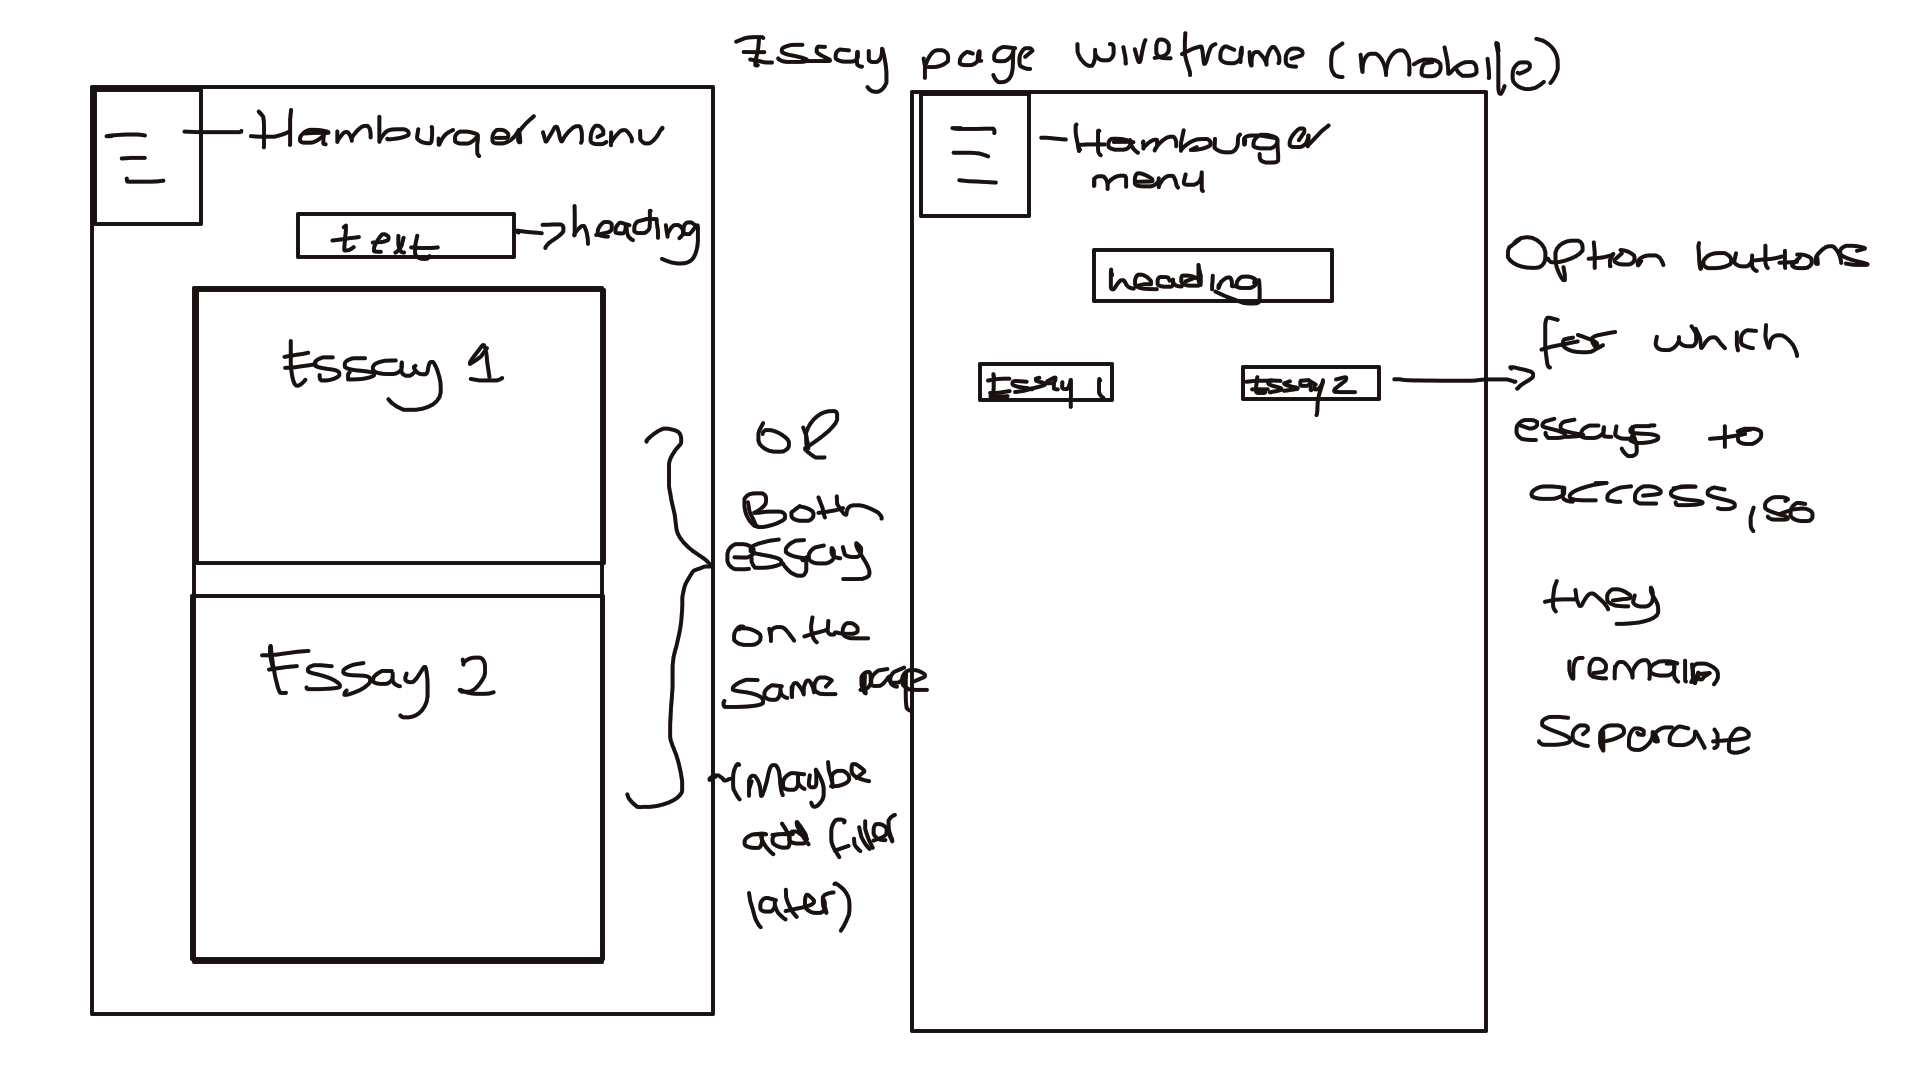 Essay page wireframe (mobile)
Hamburger menu
text
heading
Essay 1
Essay 2
or
Both
essay
on the
same page
(Maybe
add filler
later)
Hamburger
menu
heading
Essay 1
Essay 2
Option buttons
for which
essays to
access, so
they
remain
seperate